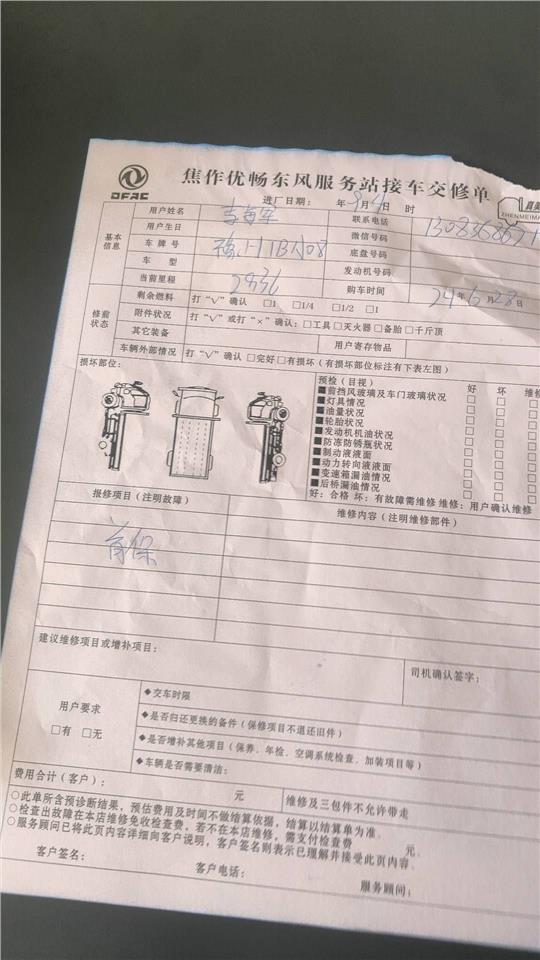 DFAC
焦作优畅东风服务站接车交修单
ZHENMEIMA
进厂日期： 年 9月4日 时
基本信息
用户姓名
联系电话
用户生日
微信号码
车牌号
底盘号码
车型
发动机号码
当前里程 2936 购车时间 24年6月28日
修前状态
剩余燃料 打“√”确认 □1 □1/4 □1/2 □1
附件状况 打“√”或打“×”确认：□工具□灭火器□备胎□千斤顶
其它装备 用户寄存物品
车辆外部情况 打“√”确认 □完好□有损坏（有损坏部位标注有下表左图）
损坏部位：
预检（目视） 好 坏 维修
■前挡风玻璃及车门玻璃状况 □ □ □
■灯具情况 □ □ □
■油量状况 □ □ □
■轮胎状况 □ □ □
■发动机机油状况 □ □ □
■防冻防锈瓶状况 □ □ □
■制动液液面 □ □ □
■动力转向液液面 □ □ □
■变速箱漏油情况 □ □ □
■后桥漏油情况 □ □ □
好：合格 坏：有故障需维修 维修：用户确认维修
报修项目（注明故障） 维修内容（注明维修部件）
首保
建议维修项目或增补项目：
司机确认签字：
用户要求
□有 □无
◆交车时限
◆是否归还更换的备件（保修项目不退还旧件）
◆是否增补其他项目（保养、年检、空调系统检查、加装项目等）
◆车辆是否需要清洁：
费用合计（客户）： 元 维修及三包件不允许带走
○此单所含预诊断结果，预估费用及时间不做结算依据，结算以结算单为准。
○检查出故障在本店维修免收检查费，若不在本店维修，需支付检查费 元。
○服务顾问已将此页内容详细向客户说明，客户签名则表示已理解并接受此页内容。
客户签名： 客户电话： 服务顾问：